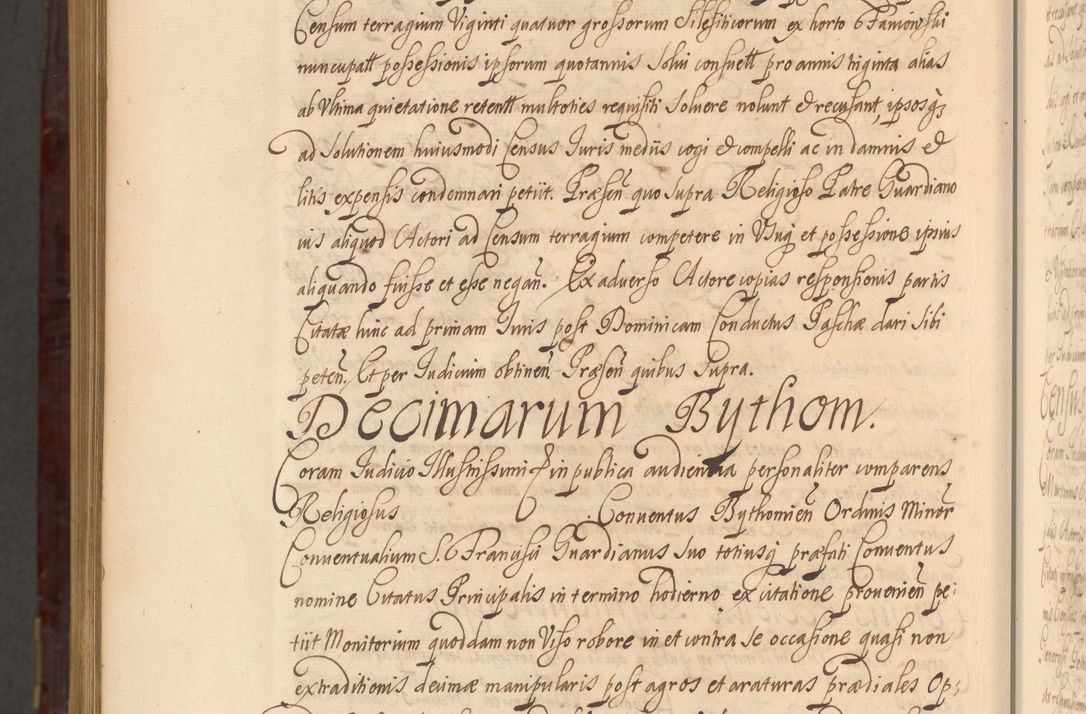 Censum terragium Viginti quatuor grossorum Silesiticorum ex horto 6 Famionski
nuncupatt possessionis ipsorum quotannis Solui consuett pro annis triginta alias
ab Vltima quietatione retentt multoties requisiti Soluere nolunt et recusant, ipsosq3
ad Solutionem huiusmodi Census Juris mediis cogi et compelli ac in damnis et
litis expensis condemnari petiit. Præsen quo supra Religioso Patre Guardiano
ius aliquod Actori ad Censum terragium competere in Vsu et possessione ipsius
aliquando fuisse et esse negan. Ex adverso Actore copias responsionis partis
Citatæ hinc ad primam Juris post Dominicam Conductus Paschæ dari sibi
peten. Et per Judicium obtinen. Præsen quibus Supra.
Decimarum Bythom.
Coram Judicio Illustrissimi in publica audientia personaliter comparens
Religiosus Conuentus Bythomien Ordinis Minor
Conuentualium S. Francisci Guardianus suo totiusq præfati Conuentus
nomine Citatus Principalis in termino hodierno ex citatione prouenien pe:
tiit Monitorium quoddam non Viso robore in et contra se occasione quasi non
extraditionis decimæ manipularis post agros et araturas prædiales Op: